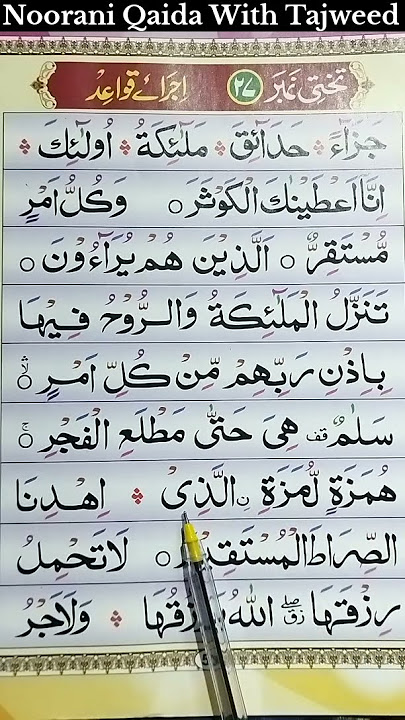 Noorani Qaida With Tajweed
تختی نمبر ۲۷ اجرائے قواعد
جَزَآءً حَدَآئِقَ مَلٰٓئِكَةُ اُولٰٓئِكَ
اِنَّاۤ اَعْطَيْنٰكَ الْكَوْثَرَ ○ وَكُلُّ اَمْرٍ
مُّسْتَقِرٌّ ○ اَلَّذِيْنَ هُمْ يُرَآءُوْنَ ○
تَنَزَّلُ الْمَلٰٓئِكَةُ وَالرُّوْحُ فِيْهَا
بِاِذْنِ رَبِّهِمْ مِّنْ كُلِّ اَمْرٍ ○ لا
سَلٰمٌ قف هِيَ حَتّٰى مَطْلَعِ الْفَجْرِ ○ ج
هُمَزَةٍ لُّمَزَةِ ن الَّذِىْ اِهْدِنَا
الصِّرَاطَ الْمُسْتَقِيْمَ ○ لَا تَحْمِلُ
رِزْقَهَا صلے زق اَللّٰهُ يَرْزُقُهَا وَلَاَجْرُ